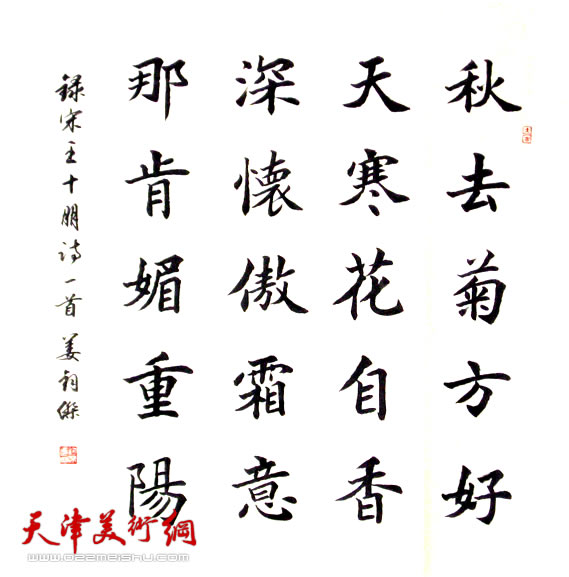 秋去菊方好
天寒花自香
深懷傲霜意
那肯媚重陽
録宋王十朋詩一首 姜钧傑
天津美術網
www.022meishu.com